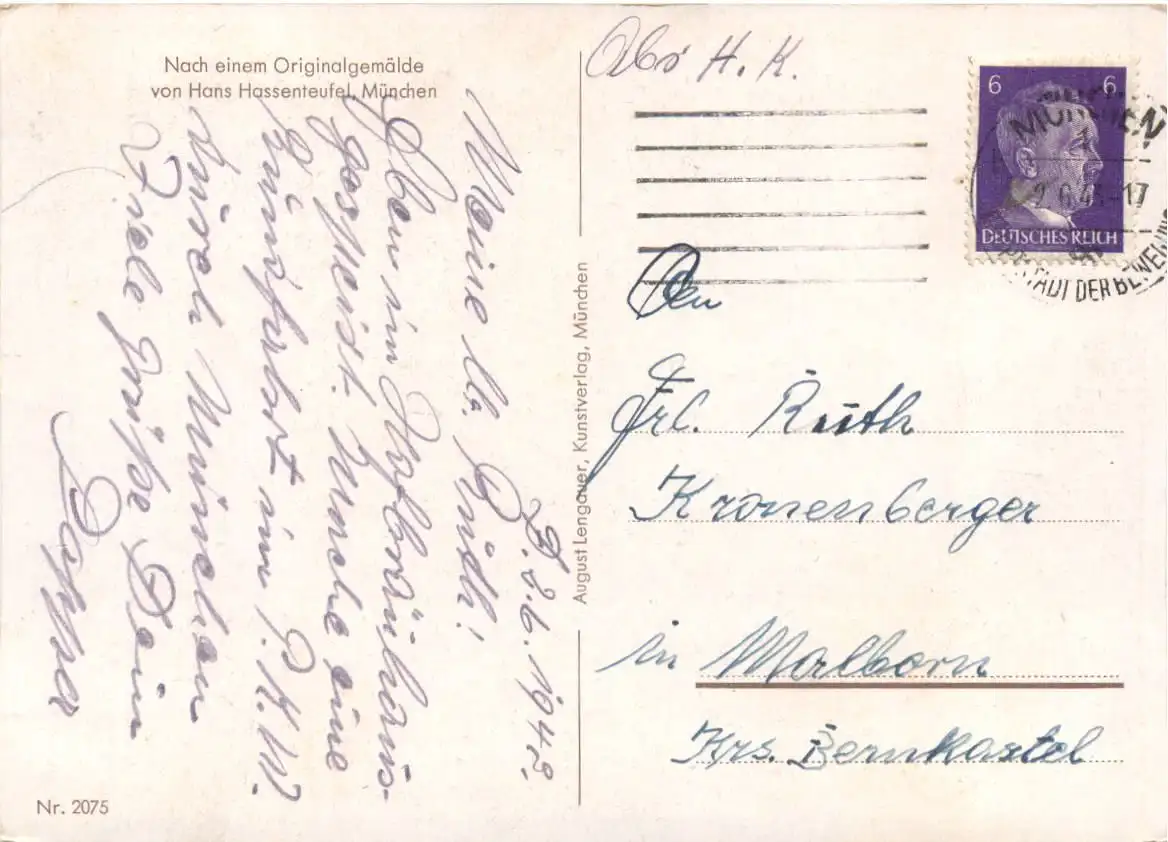 Nach einem Originalgemälde
von Hans Hassenteufel, München
Abs H. K.
6 6
DEUTSCHES REICH
MÜNCHEN
2.6.43-17
STADT DER BEWEGUNG
Meine lb. Ruth!
Eben im Hofbräuhaus
gespeist. Mache eine
Rundfahrt im P.K.W.
durch München
Viele Grüße Dein
August Lengauer, Kunstverlag, München
An
Frl. Ruth
Kronenberger
in Malborn
Krs. Bernkastel
Nr. 2075